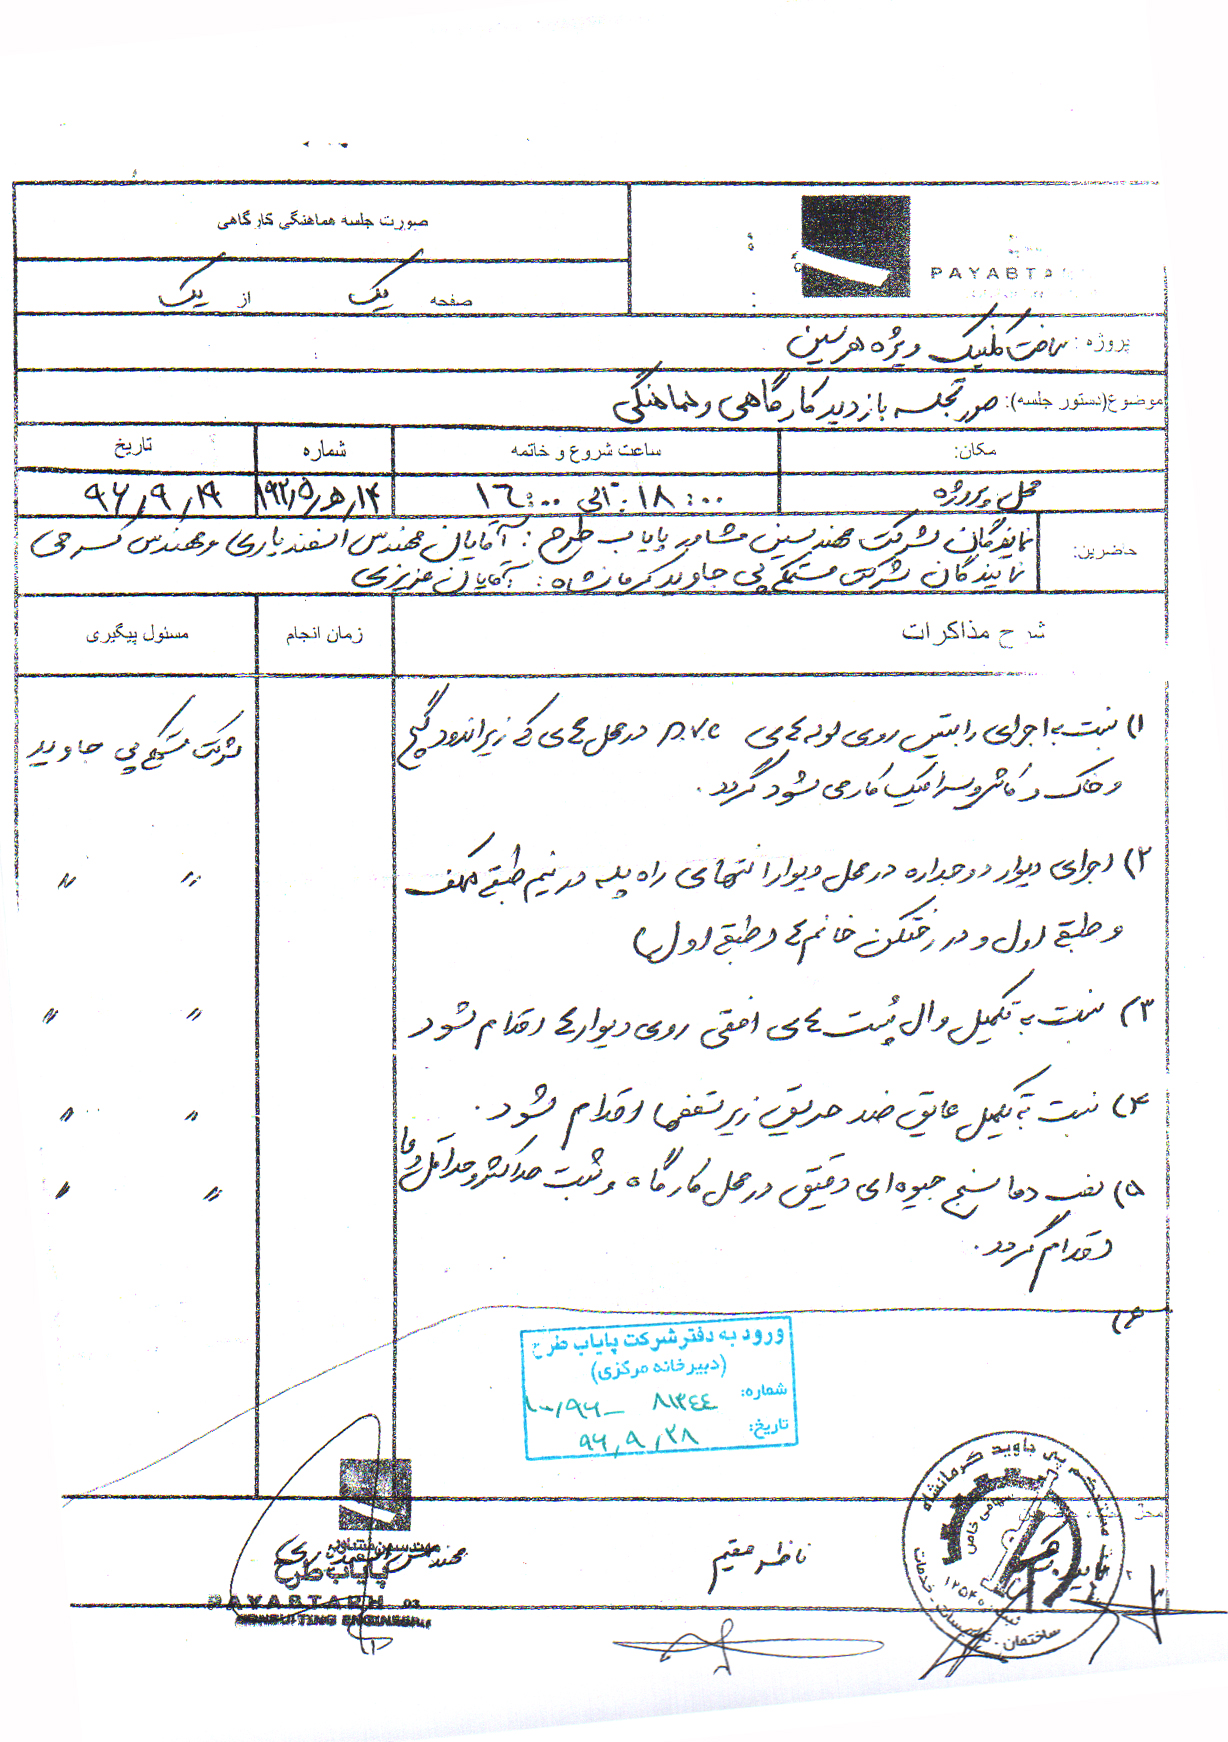 صورت جلسه هماهنگی کارگاهی
صفحه یک از یک
PAYABTA
پروژه : ساخت کلینیک ویژه هرسین
موضوع(دستور جلسه): صورتجلسه بازدید کارگاهی و هماهنگی
مکان: ساعت شروع و خاتمه شماره تاریخ
محل پروژه ۱۸:۰۰ الی ۱۶:۰۰ ۹۶/۹/۱۹
حاضرین: نمایندگان شرکت مهندسین مشاور پایاب طرح : آقایان مهندس اسفندیاری و مهندس
نمایندگان شرکت مستحکم پی جاوید کرمانشاه : آقایان عزیزی
شرح مذاکرات زمان انجام مسئول پیگیری
۱) نسبت به اجرای رابیتس روی لوله های P.V.C در محل هایی که زیر اندود گچ شرکت مستحکم پی جاوید
و خاک و کاشی و سرامیک کار می شود گردد .
۲) اجرای دیوار دو جداره در محل دیوار انتهای راه پله در نیم طبقه همکف " "
و طبقه اول و در رختکن خانم ها (طبقه اول)
۳) نسبت به تکمیل وال پست های افقی روی دیوارها اقدام شود " "
۴) نسبت به تکمیل عایق ضد حریق زیر سقفها اقدام شود . " "
۵) نصب دماسنج جیوه ای دقیق در محل کارگاه و ثبت حداکثر و حداقل دما " "
اقدام گردد .
۶)
ورود به دفتر شرکت پایاب طرح
(دبیرخانه مرکزی)
شماره: ۸۱۳۴۴ _ ۱۰۰/۹۶
تاریخ: ۹۶/۹/۲۸
مستحکم پی جاوید کرمانشاه
سهامی خاص
ساختمان - تاسیسات - خدمات
ناظر مقیم
مهندس اسفندیاری
مهندسین مشاور
پایاب طرح
PAYABTARH 03
CONSULTING ENGINEERS